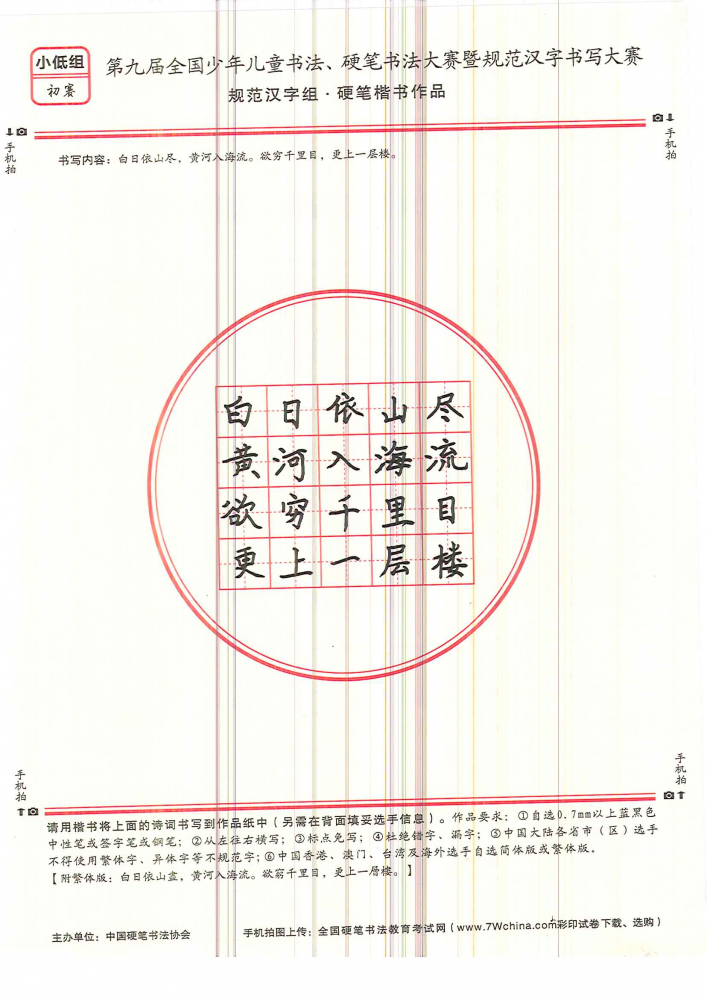 小低组
初赛
第九届全国少年儿童书法、硬笔书法大赛暨规范汉字书写大赛
规范汉字组·硬笔楷书作品
手机拍
手机拍
书写内容：白日依山尽，黄河入海流。欲穷千里目，更上一层楼。
白日依山尽
黄河入海流
欲穷千里目
更上一层楼
手机拍
手机拍
请用楷书将上面的诗词书写到作品纸中（另需在背面填妥选手信息）。作品要求：①自选0.7mm以上蓝黑色
中性笔或签字笔或钢笔；②从左往右横写；③标点免写；④杜绝错字、漏字；⑤中国大陆各省市（区）选手
不得使用繁体字、异体字等不规范字；⑥中国香港、澳门、台湾及海外选手自选简体版或繁体版。
【附繁体版：白日依山盡，黄河入海流。欲窮千里目，更上一層樓。】
主办单位：中国硬笔书法协会
手机拍图上传：全国硬笔书法教育考试网（www.7Wchina.com彩印试卷下载、选购）